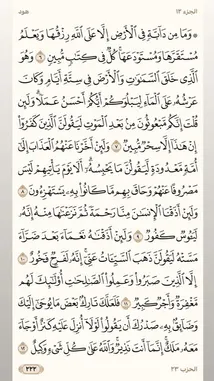 الجزء ١٢
هود
۞ وَمَا مِن دَآبَّةٍ فِي ٱلْأَرْضِ إِلَّا عَلَى ٱللَّهِ رِزْقُهَا وَيَعْلَمُ
مُسْتَقَرَّهَا وَمُسْتَوْدَعَهَا كُلٌّ فِي كِتَٰبٍ مُّبِينٍ ٦ وَهُوَ
ٱلَّذِي خَلَقَ ٱلسَّمَٰوَٰتِ وَٱلْأَرْضَ فِي سِتَّةِ أَيَّامٍ وَكَانَ
عَرْشُهُۥ عَلَى ٱلْمَآءِ لِيَبْلُوَكُمْ أَيُّكُمْ أَحْسَنُ عَمَلًا وَلَئِن
قُلْتَ إِنَّكُم مَّبْعُوثُونَ مِنۢ بَعْدِ ٱلْمَوْتِ لَيَقُولَنَّ ٱلَّذِينَ كَفَرُوٓا۟
إِنْ هَٰذَآ إِلَّا سِحْرٌ مُّبِينٌ ٧ وَلَئِنْ أَخَّرْنَا عَنْهُمُ ٱلْعَذَابَ إِلَىٰٓ
أُمَّةٍ مَّعْدُودَةٍ لَّيَقُولُنَّ مَا يَحْبِسُهُۥٓ أَلَا يَوْمَ يَأْتِيهِمْ لَيْسَ
مَصْرُوفًا عَنْهُمْ وَحَاقَ بِهِم مَّا كَانُوا۟ بِهِۦ يَسْتَهْزِءُونَ ٨
وَلَئِنْ أَذَقْنَا ٱلْإِنسَٰنَ مِنَّا رَحْمَةً ثُمَّ نَزَعْنَٰهَا مِنْهُ إِنَّهُۥ
لَيَـُٔوسٌ كَفُورٌ ٩ وَلَئِنْ أَذَقْنَٰهُ نَعْمَآءَ بَعْدَ ضَرَّآءَ
مَسَّتْهُ لَيَقُولَنَّ ذَهَبَ ٱلسَّيِّـَٔاتُ عَنِّيٓ إِنَّهُۥ لَفَرِحٌ فَخُورٌ ١٠
إِلَّا ٱلَّذِينَ صَبَرُوا۟ وَعَمِلُوا۟ ٱلصَّٰلِحَٰتِ أُو۟لَٰٓئِكَ لَهُم
مَّغْفِرَةٌ وَأَجْرٌ كَبِيرٌ ١١ فَلَعَلَّكَ تَارِكٌۢ بَعْضَ مَا يُوحَىٰٓ إِلَيْكَ
وَضَآئِقٌۢ بِهِۦ صَدْرُكَ أَن يَقُولُوا۟ لَوْلَآ أُنزِلَ عَلَيْهِ كَنزٌ أَوْ جَآءَ
مَعَهُۥ مَلَكٌ إِنَّمَآ أَنتَ نَذِيرٌ وَٱللَّهُ عَلَىٰ كُلِّ شَيْءٍ وَكِيلٌ ١٢
الحزب ٢٣
٢٢٢